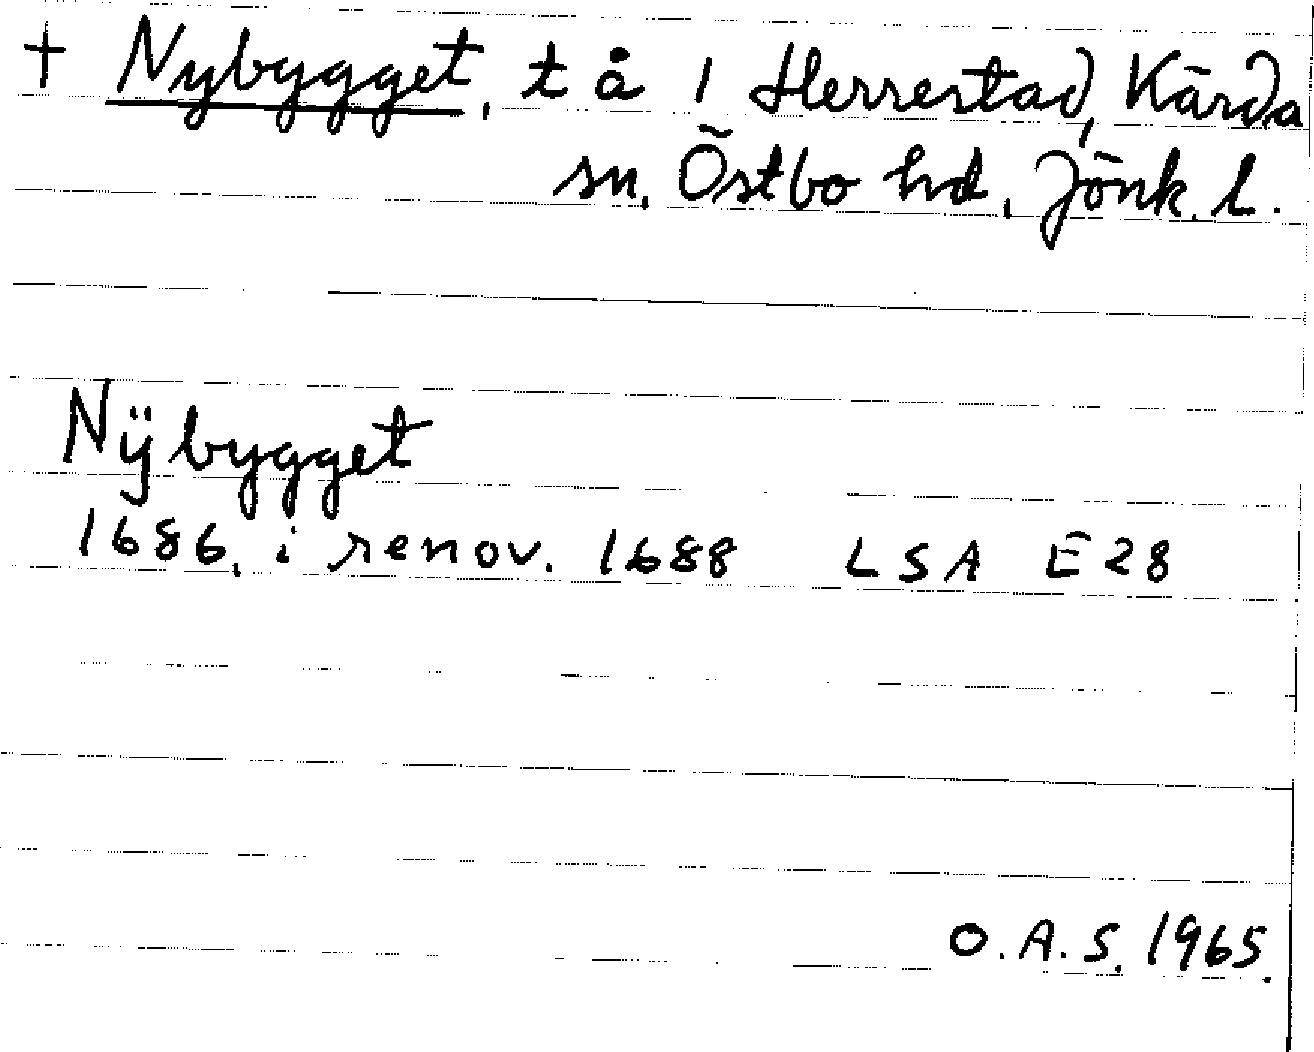 † Nybygget, t å 1 Herrestad, Kärda
sn, Östbo hd, Jönk. l.
Nÿbygget
1686, i renov. 1688 LSA E28
O.A.S. 1965.